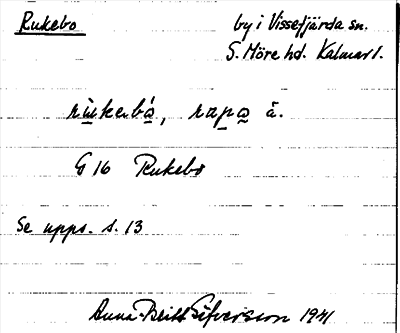 Rukebo
by i Vissefjärda sn.
S. Möre hd. Kalmar l.
rùkerbá, rapa å.
G 16 Rukebo
Se upps. s. 13
Anna-Britt Silfversson 1941